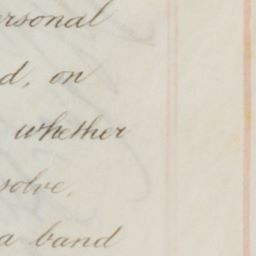 ersonal
d, on
whether
solve.
a band